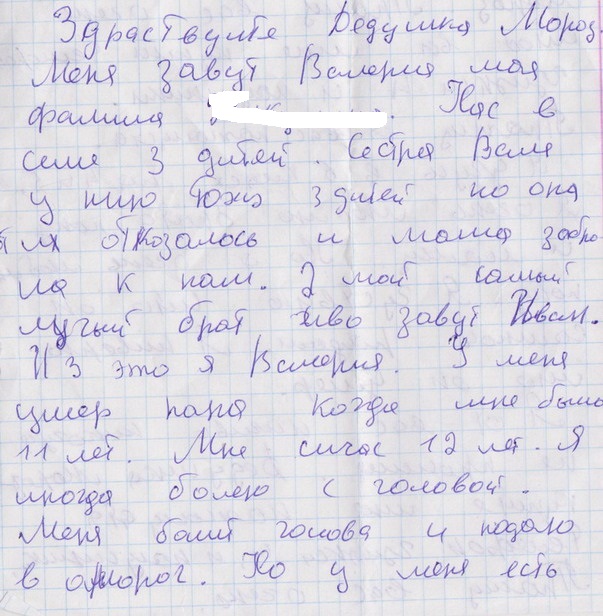 Здраствуйте Дедушка Мороз.
Меня завут Валерия моя
фамилия . Нас в
семе 3 дитей. Сестра Валя
у нию тожэ 3 дитей но она
от их откозалось и мама забра
ла к нам. 2 мой самый
лучый брат ево завут Иван.
И 3 это я Валерия. У меня
умер папа когда мне было
11 лет. Мне сичас 12 лет. Я
иногда болею с головой.
Меня болит голова и подаю
в оморог. Но у меня есть